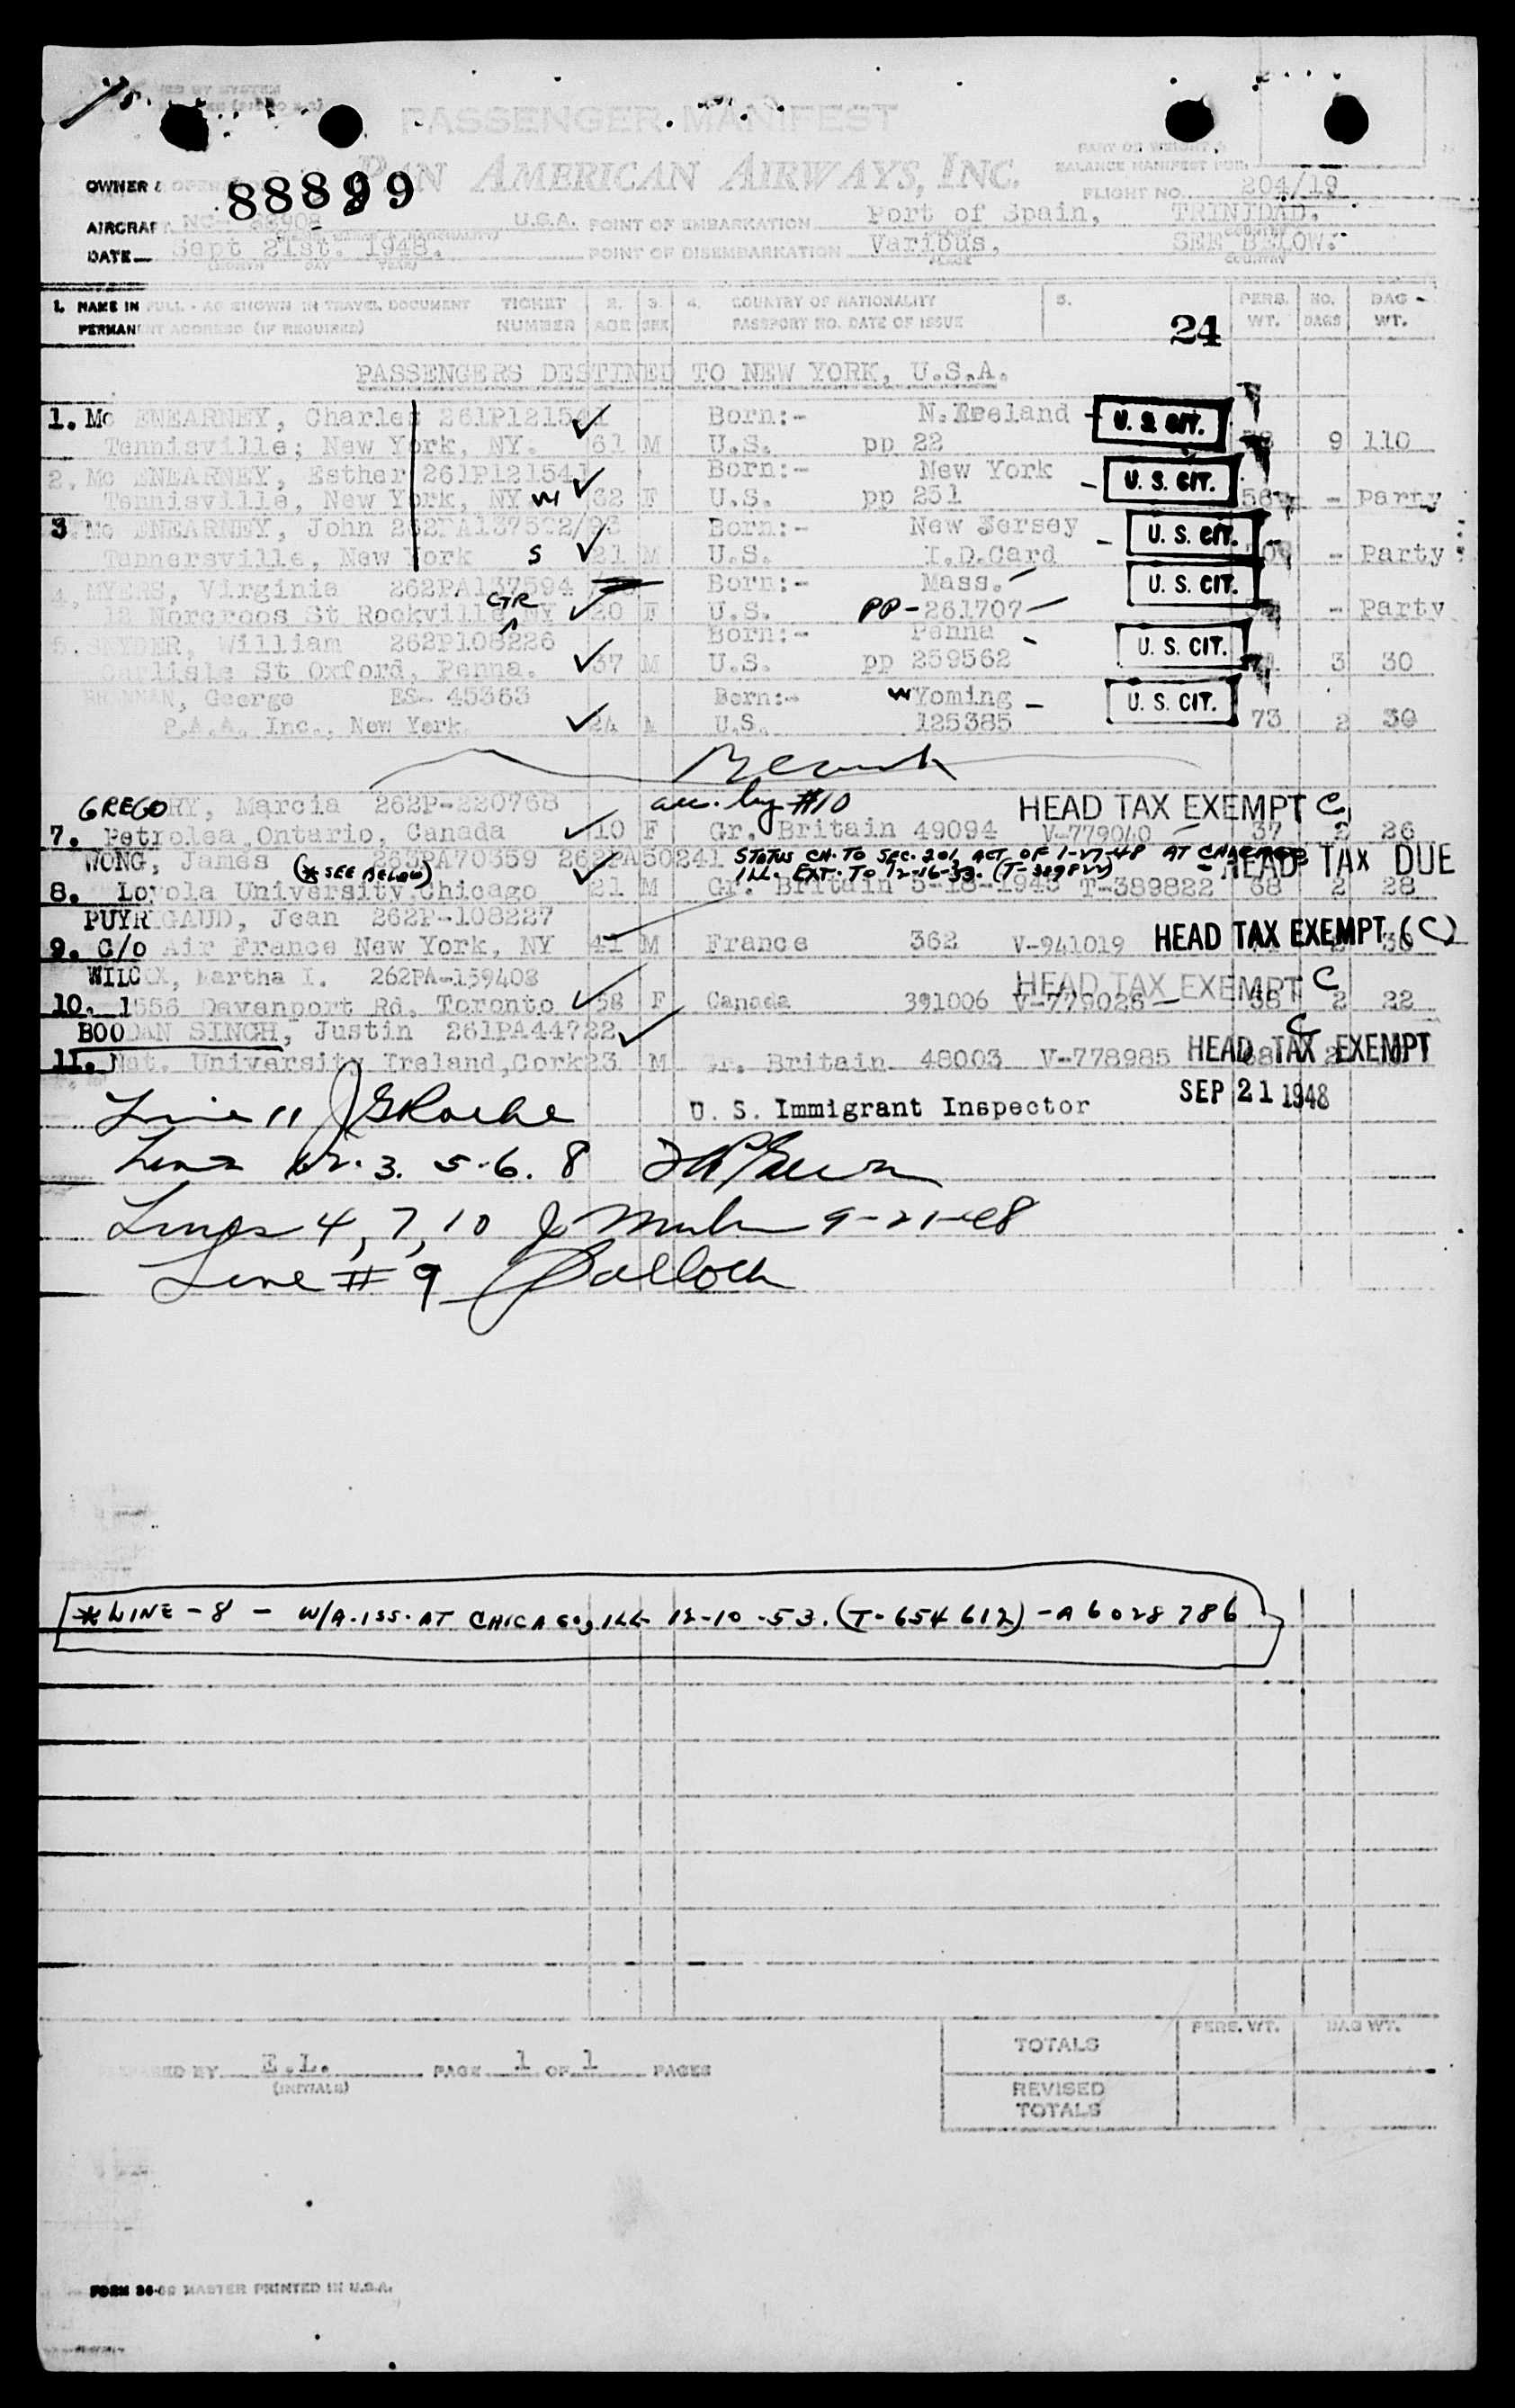 PASSENGER MANIFEST
PAN AMERICAN AIRWAYS, INC.
PART OF WEIGHT &
BALANCE MANIFEST FOR
OWNER & 88899 FLIGHT NO. 204/19
AIRCRAFT NC- 88908 U.S.A. POINT OF EMBARKATION Port of Spain, TRINIDAD.
DATE Sept 21st. 1948. POINT OF DISEMBARKATION Various, SEE BELOW.
(MONTH DAY YEAR) PLACE COUNTRY
1. NAME IN FULL - AS SHOWN IN TRAVEL DOCUMENT TICKET 2. 3. 4. COUNTRY OF NATIONALITY 5. PERS. NO. BAG
PERMANENT ADDRESS (IF REQUIRED) NUMBER AGE SEX PASSPORT NO. DATE OF ISSUE 24 WT. BAGS WT.
PASSENGERS DESTINED TO NEW YORK, U.S.A.
1. Mc ENEARNEY, Charles 261P121541 Born:- N. Ireland U. S. CIT.
Tennisville; New York, NY. 61 M U.S. pp 22 9 110
2. Mc ENEARNEY, Esther 261P121541 Born:- New York U. S. CIT.
Tennisville, New York, NY 32 F U.S. pp 231 - Party
3. Mc ENEARNEY, John 262PA137592/93 Born:- New Jersey U. S. CIT.
Tannersville, New York S 21 M U.S. I.D.Card - Party
4. MYERS, Virginia 262PA137594 Born:- Mass. U. S. CIT.
CTR
12 Norcroos St Rockville NY 20 F U.S. PP-261707 - Party
5. SNYDER, William 262P108226 Born:- Penna U. S. CIT.
Carlisle St Oxford, Penna. 37 M U.S. pp 259562 3 30
BRENNAN, George ES- 45363 Born:- Wyoming U. S. CIT.
P.A.A. Inc., New York 24 M U.S. 125385 73 2 30
GREGORY, Marcia 262P-220768 acc. by #10 HEAD TAX EXEMPT C
7. Petrolea, Ontario, Canada 10 F Gr. Britain 49094 V-779040 37 2 26
WONG, James (* SEE BELOW) 263PA70359 262PA50241 STATUS CH. TO SEC. 201, ACT OF 1-27-48 AT CHICAGO HEAD TAX DUE
ILL. EXT. TO 12-16-53. (T-389822)
8. Loyola University, Chicago 21 M Gr. Britain 5-18-1948 T-389822 68 2 28
PUYRIGAUD, Jean 262P-108227
9. C/o Air France New York, NY 41 M France 362 V-941019 HEAD TAX EXEMPT (C)
WILCOX, Martha I. 262PA-159408 HEAD TAX EXEMPT C
10. 1556 Davenport Rd, Toronto 58 F Canada 391006 V-779026 58 2 22
BOODAN SINGH, Justin 261PA44722 C
11. Nat. University Ireland, Cork 23 M Gr. Britain 48003 V-778985 68 HEAD TAX EXEMPT
Line 11 U. S. Immigrant Inspector SEP 21 1948
Lines 1. 2. 3. 5. 6. 8
Lines 4, 7, 10 9-21-48
Line # 9
* LINE - 8 - W/A. ISS. AT CHICAGO, ILL 12-10-53. (T-654612) - A6028786
TOTALS PERS. WT. BAG WT.
PREPARED BY E.L. PAGE 1 OF 1 PAGES
(INITIALS)
REVISED
TOTALS
MASTER PRINTED IN U.S.A.